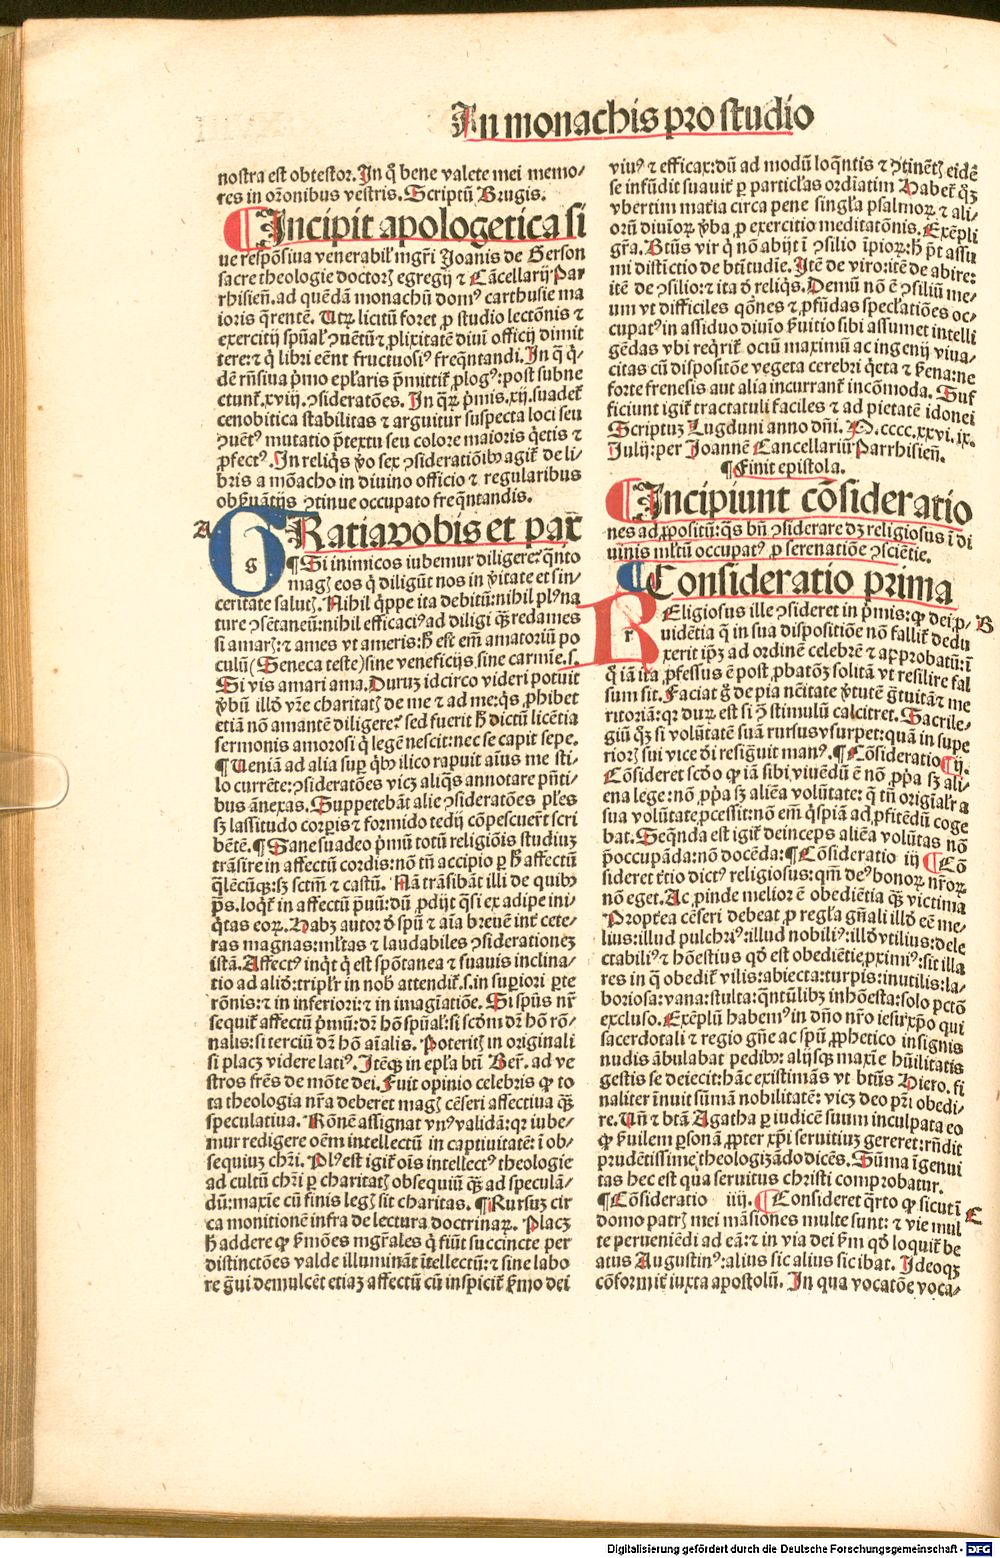 In monachis pro studio
nostra est obtestor. In q̄ bene valete mei memo/
res in orōnibus vestris. Scriptū Brugis.
¶ Incipit apologetica si
ue respōsiua venerabil̓ mgr̄i Joanis de Gerson
sacre theologie doctorꝭ egregij ⁊ Cācellarij Par
rhisieñ. ad quēdā monachū domꝰ carthusie ma
ioris q̄rentē. Utꝝ licitū foret ꝓ studio lectōnis ⁊
exercitij spūal̓ ꝯuētū ⁊ ꝓlixitatē diui officij dimit
tere: ⁊ q̇ libri eēnt fructuosiꝰ freq̄ntandi. In q̄ q̇/
dē rn̄siua p̄mo epl̓aris p̄mittit̉ ꝓlogꝰ: post subne
ctunt̉. xviij. ꝯsideratōes. In q̄ꝝ p̄mis. xij. suadet̉
cenobitica stabilitas ⁊ arguitur suspecta loci seu
ꝯuētꝰ mutatio p̄textu seu colore maioris q̇etis ⁊
ꝓfectꝰ. In reliq̇s ꝟo sex ꝯsideratiōibꝰ agit̉ de li/
bris a mōacho in diuino officio ⁊ regularibus
obẜuātijs ꝯtinue occupato freq̄ntandis.
A
g
GRatia vobis et pax̄
¶ Si inimicos iubemur diligere? q̄nto
magꝭ eos q̇ diligūt nos in ꝟitate et sin/
ceritate salutꝭ. Nihil q̇ppe ita debitū: nihil plꝰ na
ture ꝯsetaneū: nihil efficaciꝰ ad diligi q̄ꝫ redames
si amarꝭ: ⁊ ames vt ameris: h̄ est em̄ amatoriū po
culū (Seneca teste) sine veneficijs sine carmīe. s.
Si vis amari ama. Duruꝫ idcirco videri potuit
ꝟbū illḋ vr̄e charitatꝭ de me ⁊ ad me: q̇s ꝓhibet
etiā nō amantē diligere? sed fuerit h̄ dictū licētia
sermonis amorosi q̇ legē nescit: nec se capit sepe.
¶ Ueniā ad alia suꝑ q̇bꝰ ilico rapuit aīus me sti/
lo currēte: ꝯsideratōes vicꝫ aliq̄s annotare pn̄ti/
bus ānexas. Suppetebāt alie ꝯsideratōes ples
sꝫ lassitudo corꝑis ⁊ formido tedij cōpescuer̄t scri
bētē. ¶ Sane suadeo p̄mū totū religiōis studiuꝫ
trāsire in affectū cordis: nō tn̄ accipio ꝑ h̄ affectū
q̄lēcūqꝫ: sꝫ sctm̄ ⁊ castū. Nā trāsibāt illi de quibꝰ
p̄s. loqt̉ in affectū p̄uū: dū ꝓdijt q̄si ex adipe ini/
q̇tas eoꝝ. Habꝫ autor ḋ spū ⁊ aīa breuē int̉ cete/
ras magnas: ml̓tas ⁊ laudabiles ꝯsiderationeꝫ
istā. Affectꝰ inq̇t q̇ est spōtanea ⁊ suauis inclina/
tio ad aliḋ: tripl̓r in nob̓ attendit̉. s. in suꝑiori ꝑte
rōnis: ⁊ in inferiori: ⁊ in imagīatiōe. Si spūs nr̄
sequit̉ affectū p̄mū: dr̄ hō spūal̓: si scḋm dr̄ hō rō/
nalis: si terciū dr̄ hō aīalis. Poteritꝭ in originali
si placꝫ videre latiꝰ. Itēqꝫ in epl̓a btī Ber̄. ad ve
stros fr̄es de mōte dei. Fuit opinio celebris ꝙ to
ta theologia nr̄a deberet magꝭ cēseri affectiua q̄ꝫ
speculatiua. Rōnē assignat vnꝰ validā: qꝛ iube/
mur redigere oēm intellectū in captiuitatē: ī ob/
sequiuꝫ chr̄i. Plꝰ est igit̉ oīs intellectꝰ theologie
ad cultū chr̄i ꝑ charitatꝭ obsequiū q̄ꝫ ad speculā/
dū: maxīe cū finis legꝭ sit charitas. ¶ Rursuꝫ cir
ca monitionē infra de lectura doctrinaꝝ. Placꝫ
h̄ addere ꝙ ẜmōes mgr̄ales q̇ fiūt succincte per
distinctōes valde illumināt ītellectū: ⁊ sine labo
re ḡui demulcēt etiaꝫ affectū cū inspicit̉ ẜmo dei
viuꝰ ⁊ efficax: dū ad modū loq̄ntis ⁊ ꝯtinētꝭ eidē
se infūdit suauit̉ ꝑ particl̓as ordīatim Habet̉ q̄ꝫ
vbertim mat̓ia circa pene singl̓a psalmoꝝ ⁊ ali/
orū diuīoꝝ ꝟba ꝓ exercitio meditatōnis. Exēpli
gr̄a. Btūs vir q̇ nō abijt ī ꝯsilio īpioꝝ: h̄ p̄t assu
mi distīctio de btītudīe. Itē de viro: itē de abire:
itē de ꝯsilio: ⁊ ita ḋ reliq̇s. Demū nō ē ꝯsiliū me/
um vt difficiles qōnes ⁊ ꝓfūdas specl̓atiōes oc/
cupatꝰ in assiduo diuīo ẜuitio sibi assumet intelli
gēdas vbi req̇rit̉ ociū maximū ac ingenij viua/
citas cū dispositōe vegeta cerebri q̇eta ⁊ ẜena: ne
forte frenesis aut alia incurrant̉ incōmoda. Suf
ficiunt igit̉ tractatuli faciles ⁊ ad pietatē idonei
Scriptuꝫ Lugduni anno dn̄i. M. cccc. xxvi. ix.
Julij: per Joannē Cancellariū Parrhisieñ.
¶ Finit epistola.
¶ Incipiunt cōsideratio
nes ad ꝓpositū: q̄s bn̄ ꝯsiderare dꝫ religiosus ī di
uinis ml̓tū occupatꝰ ꝓ serenatiōe ꝯsciētie.
¶ Consideratio prima
B
r
REligiosus ille ꝯsideret in p̄mis: ꝙ dei ꝓ/
uidētia q̄ in sua dispositiōe nō fallit̉ dedu
xerit ip̄ꝫ ad ordinē celebrē ⁊ approbatū: ī
q̇ iā ita ꝓfessus ē post ꝓbatōꝫ solitā vt resilire fal
sum sit. Faciat ḡ de pia nēitate ꝟtutē ḡtuitā ⁊ me
ritoriā: qꝛ duꝝ est si ꝯ̄ stimulū calcitret. Sacrile/
giū qꝫ si volūtatē suā rursus vsurpet: quā in supe
riorꝭ sui vice dei resigͦuit manꝰ. ¶ Cōsideratio ij.
Cōsideret scḋo ꝙ iā sibi viuēdū ē nō ꝓp̄a sꝫ ali/
ena lege: nō ꝓp̄a sꝫ aliēa volūtate: q̄ tn̄ origīal̓r a
sua volūtate ꝓcessit: nō em̄ q̇spiā ad ꝓfitēdū coge
bat. Seq̄nda est igit̉ deinceps aliēa volūtas nō
p̄occupāda: nō docēda: ¶ Cōsideratio iij ¶ Cō
sideret t̉tio dictꝰ religiosus: qm̄ deꝰ bonoꝝ nr̄oꝝ
nō eget. Ac ꝓinde melior ē obediētia q̄ꝫ victima
Propt̉ea cēseri debeat ꝓ regl̓a gn̄ali illḋ eē me/
lius: illud pulchriꝰ: illud nobiliꝰ: illḋ vtilius: dele
ctabiliꝰ ⁊ hōestius qḋ est obediētie ꝓximiꝰ: sit illa
res in q̄ obedit̉ vilis: abiecta: turpis: inutilis: la/
boriosa: vana: stulta: q̄ntūlibꝫ inhōesta: solo pctō
excluso. Exēplū habemꝰ in dn̄o nr̄o iesu xp̄o qui
sacerdotali ⁊ regio gn̄e ac spū ꝓphetico insignis
nudis ābulabat pedibꝰ: alijsqꝫ maxīe hūilitatis
gestis se deiecit: hāc existimās vt btūs Hiero. fi
naliter īnuit sūmā nobilitatē: vicꝫ deo pr̄i obedi/
re. Un̄ ⁊ btā Agatha ꝑ iudicē suum inculpata eo
ꝙ ẜuilem ꝑsonā ꝓpter xp̄i seruitiuꝫ gereret: rn̄dit
prudētissime theologizādo dicēs. Sūma īgenui
tas hec est qua seruitus christi comprobatur.
¶ Cōsideratio iiij. ¶ Consideret q̇rto ꝙ sicut ī
C
domo patrꝭ mei māsiones multe sunt: ⁊ vie mul
te perueniēdi ad eā: ⁊ in via dei ẜm qḋ loquit̉ be
atus Augustinꝰ: alius sic alius sic ibat. Ideoqꝫ
cōformit̉ iuxta apostolū. In qua vocatōe voca/
Digitalisierung gefördert durch die Deutsche Forschungsgemeinschaft - DFG